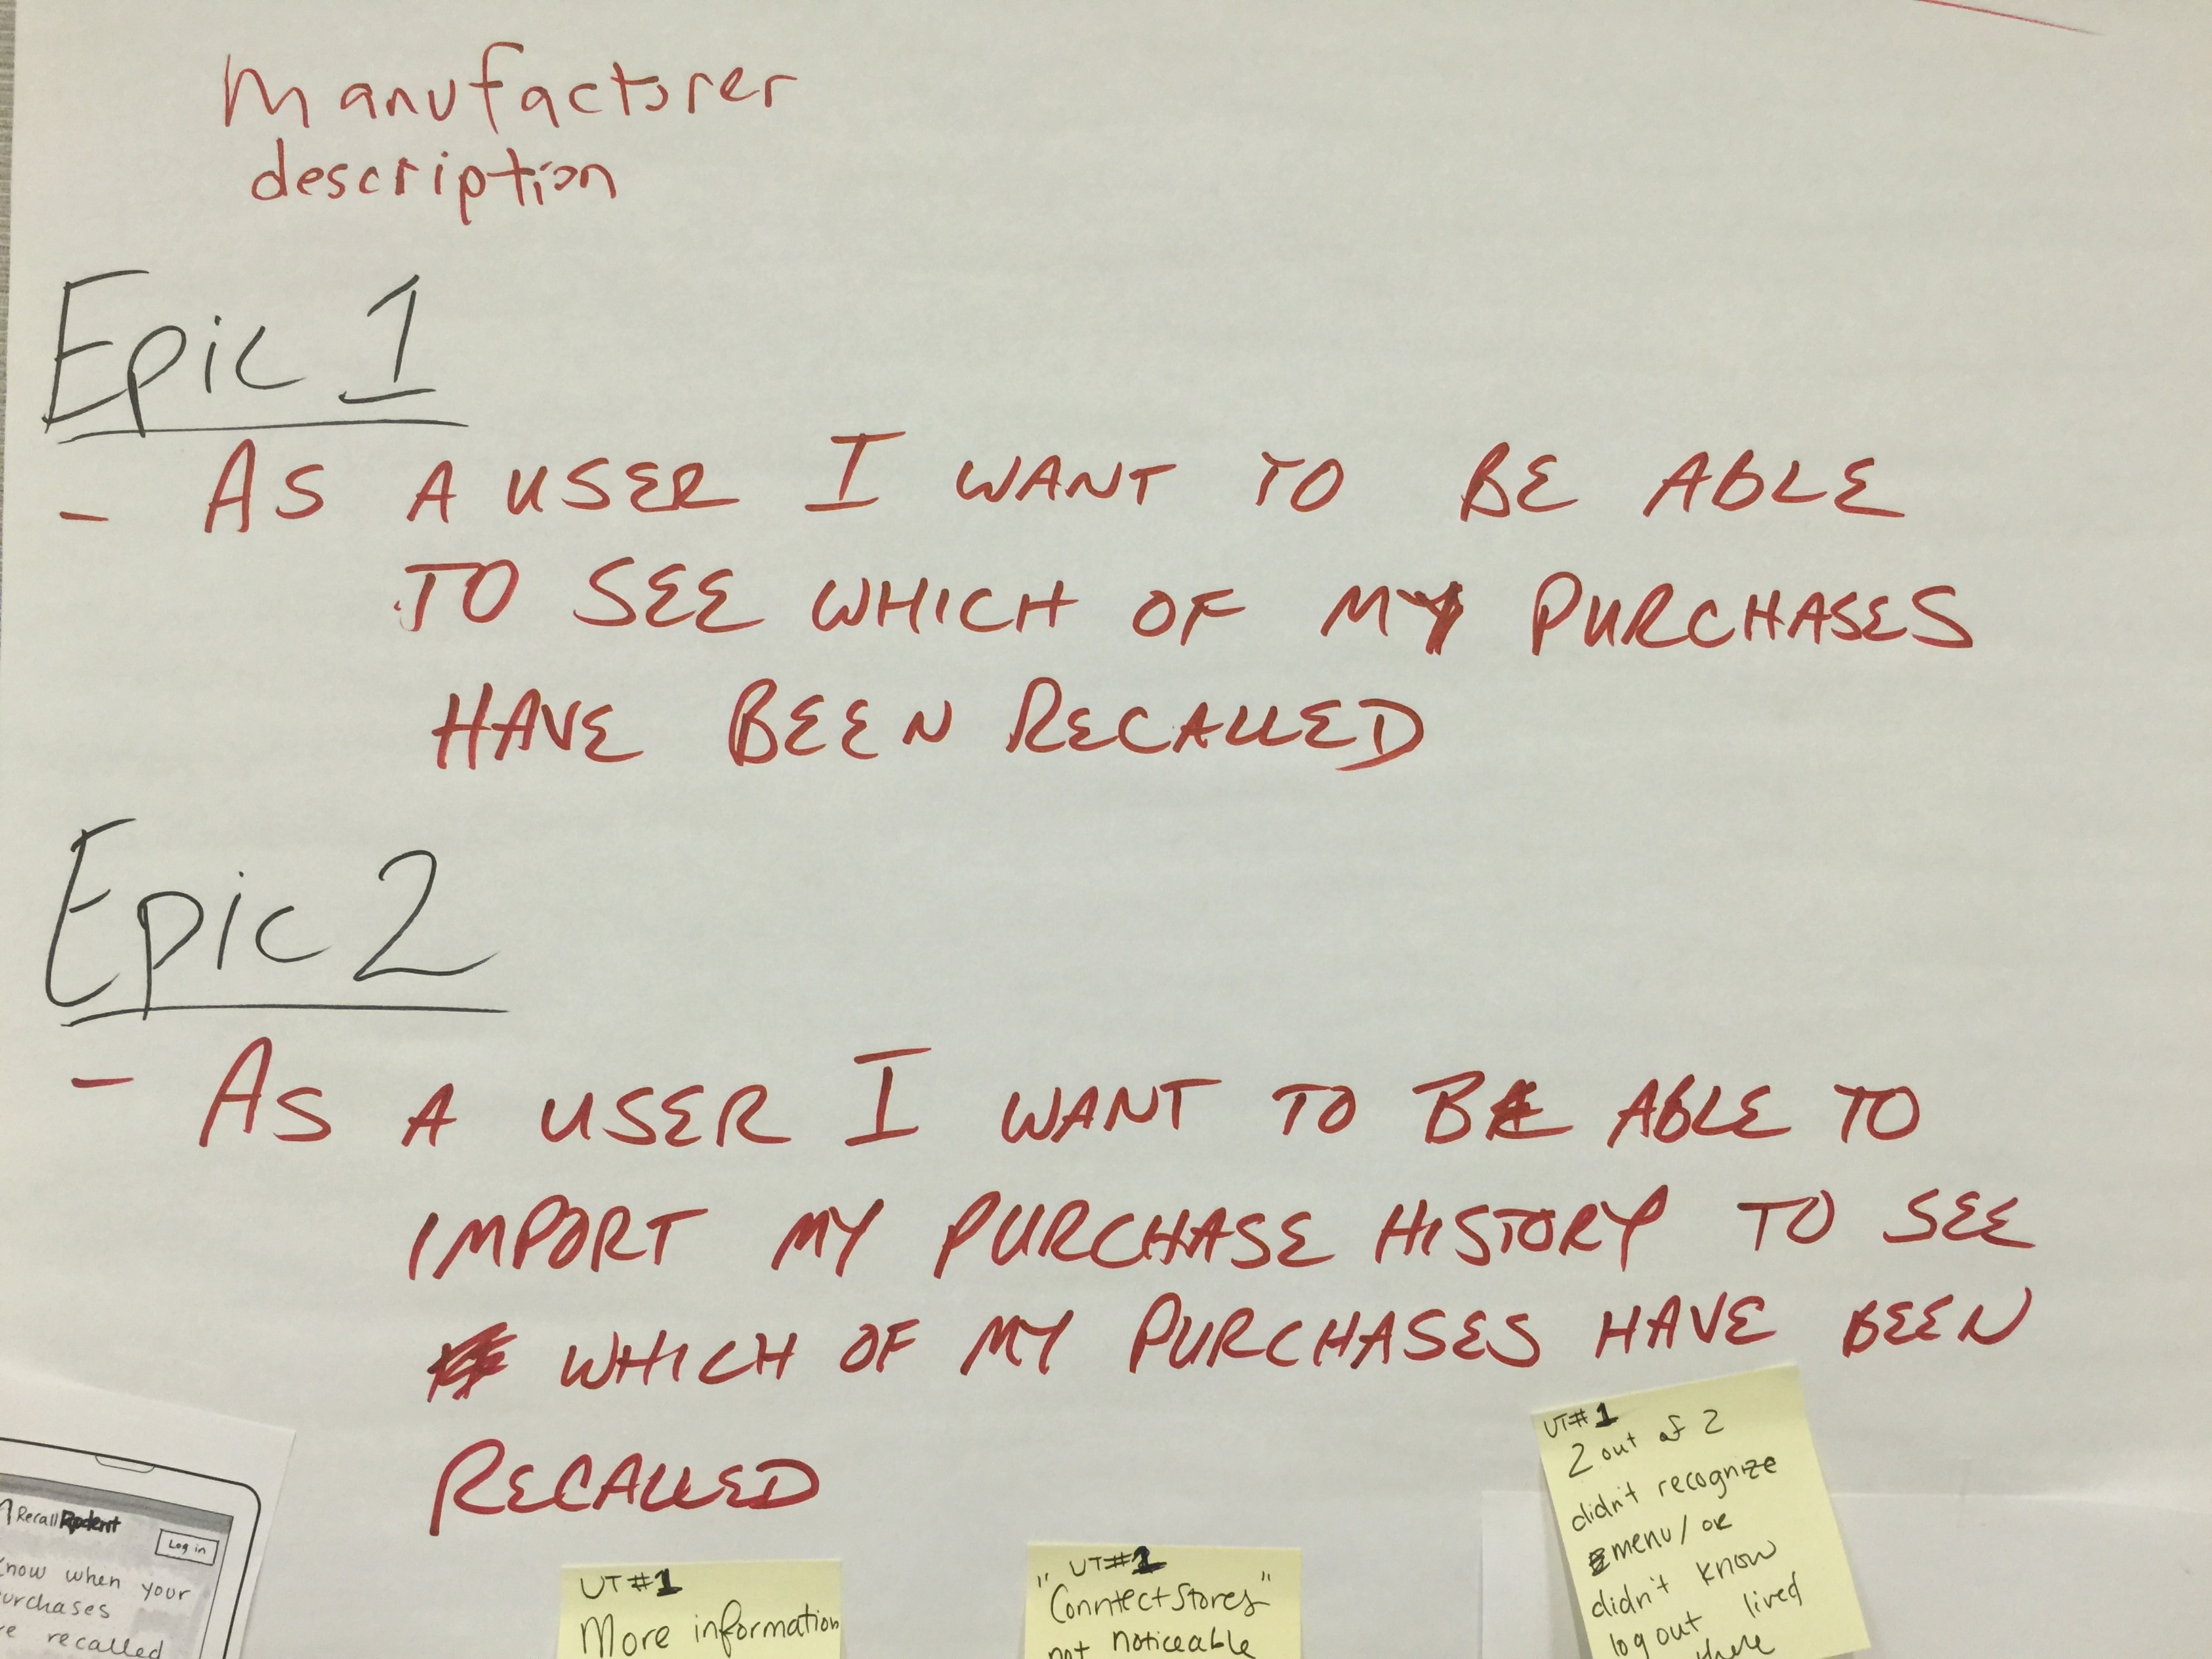 Manufactorer
description
Epic 1
- AS A USER I WANT TO BE ABLE
TO SEE WHICH OF MY PURCHASES
HAVE BEEN RECALLED
Epic 2
- AS A USER I WANT TO BE ABLE TO
IMPORT MY PURCHASE HISTORY TO SEE
WHICH OF MY PURCHASES HAVE BEEN
RECALLED
Recall
Log in
know when your
purchases
recalled
UT#1
More information
UT#1
"Conntect Stores"
not noticeable
UT#1
2 out of 2
didn't recognize
menu/or
didn't know
log out lived
there